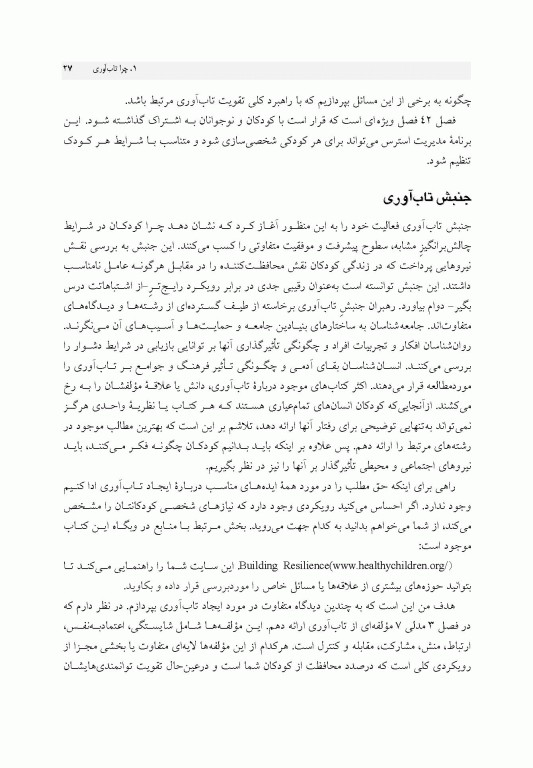 ۱. چرا تاب‌آوری ۲۷
چگونه به برخی از این مسائل بپردازیم که با راهبرد کلی تقویت تاب‌آوری مرتبط باشد.
فصل ۴۲ فصل ویژه‌ای است که قرار است با کودکان و نوجوانان به اشتراک گذاشته شود. این
برنامهٔ مدیریت استرس می‌تواند برای هر کودکی شخصی‌سازی شود و متناسب با شرایط هر کودک
تنظیم شود.
جنبش تاب‌آوری
جنبش تاب‌آوری فعالیت خود را به این منظور آغاز کرد که نشان دهد چرا کودکان در شرایط
چالش‌برانگیزِ مشابه، سطوح پیشرفت و موفقیت متفاوتی را کسب می‌کنند. این جنبش به بررسی نقش
نیروهایی پرداخت که در زندگی کودکان نقش محافظت‌کننده را در مقابل هرگونه عامل نامناسب
داشتند. این جنبش توانسته است به‌عنوان رقیبی جدی در برابر رویکرد رایج‌تر -از اشتباهاتت درس
بگیر- دوام بیاورد. رهبران جنبشِ تاب‌آوری برخاسته از طیف گسترده‌ای از رشته‌ها و دیدگاه‌های
متفاوت‌اند. جامعه‌شناسان به ساختارهای بنیادین جامعه و حمایت‌ها و آسیب‌های آن می‌نگرند.
روان‌شناسان افکار و تجربیات افراد و چگونگی تأثیرگذاری آنها بر توانایی بازیابی در شرایط دشوار را
بررسی می‌کنند. انسان‌شناسان بقای آدمی و چگونگی تأثیر فرهنگ و جوامع بر تاب‌آوری را
موردمطالعه قرار می‌دهند. اکثر کتاب‌های موجود دربارهٔ تاب‌آوری، دانش یا علاقهٔ مؤلفشان را به رخ
می‌کشند. ازآنجایی‌که کودکان انسان‌های تمام‌عیاری هستند که هر کتاب یا نظریهٔ واحدی هرگز
نمی‌تواند به‌تنهایی توضیحی برای رفتار آنها ارائه دهد، تلاشم بر این است که بهترین مطالب موجود در
رشته‌های مرتبط را ارائه دهم. پس علاوه بر اینکه باید بدانیم کودکان چگونه فکر می‌کنند، باید
نیروهای اجتماعی و محیطی تأثیرگذار بر آنها را نیز در نظر بگیریم.
راهی برای اینکه حق مطلب را در مورد همهٔ ایده‌های مناسب دربارهٔ ایجاد تاب‌آوری ادا کنیم
وجود ندارد. اگر احساس می‌کنید رویکردی وجود دارد که نیازهای شخصی کودکانتان را مشخص
می‌کند، از شما می‌خواهم بدانید به کدام جهت می‌روید. بخش مرتبط با منابع در وبگاه این کتاب
موجود است:
Building Resilience(www.healthychildren.org/). این سایت شما را راهنمایی می‌کند تا
بتوانید حوزه‌های بیشتری از علاقه‌ها یا مسائل خاص را موردبررسی قرار داده و بکاوید.
هدف من این است که به چندین دیدگاه متفاوت در مورد ایجاد تاب‌آوری بپردازم. در نظر دارم که
در فصل ۳ مدلی ۷ مؤلفه‌ای از تاب‌آوری ارائه دهم. این مؤلفه‌ها شامل شایستگی، اعتمادبه‌نفس،
ارتباط، منش، مشارکت، مقابله و کنترل است. هرکدام از این مؤلفه‌ها لایه‌ای متفاوت یا بخشی مجزا از
رویکردی کلی است که درصدد محافظت از کودکان شما است و درعین‌حال تقویت توانمندی‌هایشان